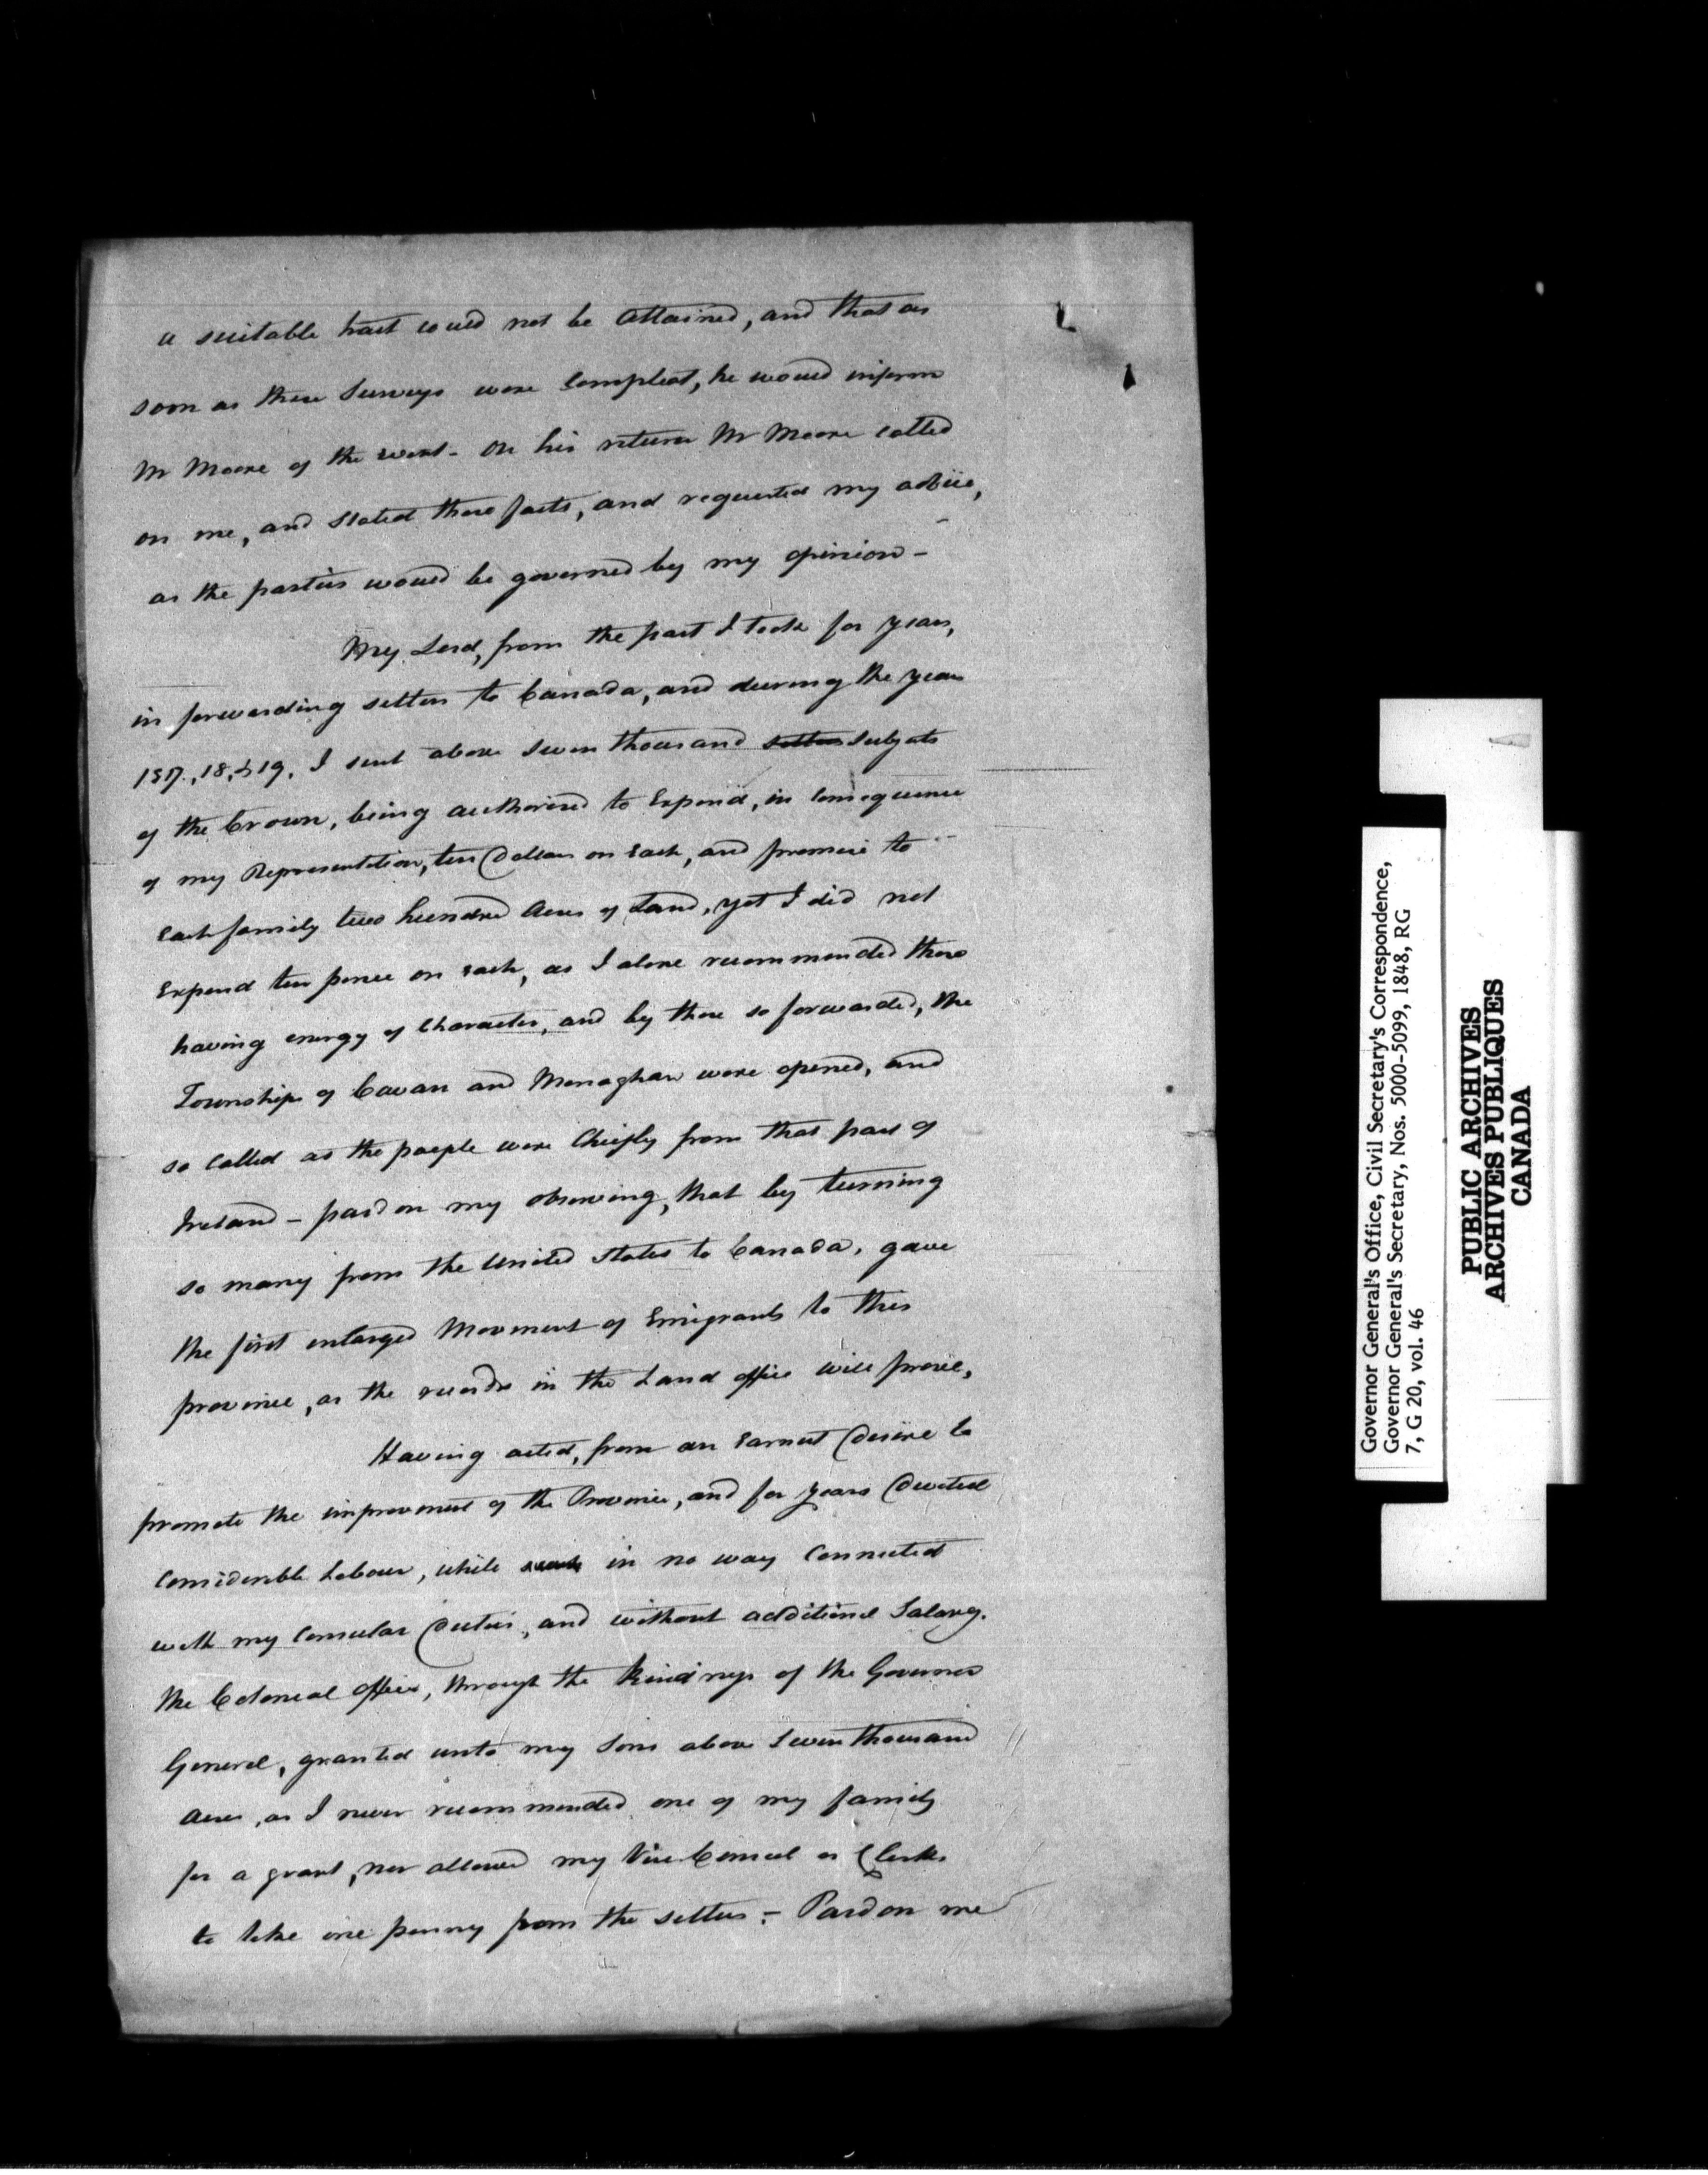 a suitable tract could not be attained, and that as
soon as these Surveys were Compleat, he would inform
Mr Moore of the
On his return Mr Moore called
on me, and stated those facts, and requested my advice,
as the parties would be governed by my opinion -
My Lord, from the part I took for years,
in forwarding settlers to Canada, and during the years
1817, 18, & 19, I sent above seven thousand settlers Subjects
of the Crown, being authorised to Expend, in Consequence
of my Representation, ten Dollars on Each, and promise to
Each family two hundred Acres of Land, yet I did not
Expend ten pence on each, as I alone recommended those
having energy of Character, and by those so forwarded, the
Townships of Cavan and Monaghan were opened, and
so Called as the people were Chiefly from that part of
Ireland - pardon my observing, that by turning
so many from the United States to Canada, gave
the first enlarged Movement of Emigrants to this
province, as the records in the Land office will prove,
Having acted, from an Earnest Desire to
promote the improvement of the Province, and for years Devoted
Considerable Labour, while in no way Connected
with my Consular Duties, and without additional Salary.
The Colonial Office, through the Kindness of the Governor
General, granted unto my Sons above Seven thousand
Acres, as I never recommended one of my family
for a grant, nor allowed my Vice Consul or Clerks
to take one penny from the settlers - Pardon me
Governor General's Office, Civil Secretary's Correspondence,
Governor General's Secretary, Nos. 5000-5099, 1848, RG
7, G 20, vol. 46
PUBLIC ARCHIVES
ARCHIVES PUBLIQUES
CANADA